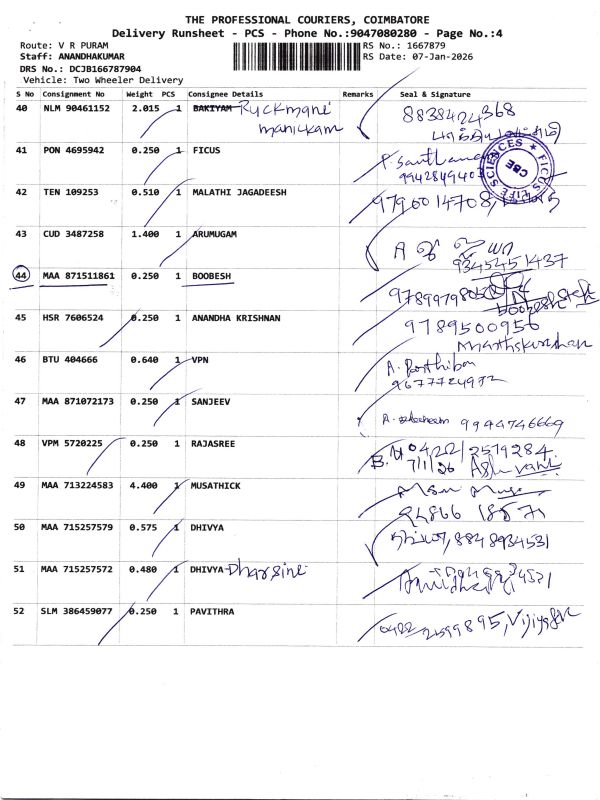 THE PROFESSIONAL COURIERS, COIMBATORE
Delivery Runsheet - PCS - Phone No.:9047080280 - Page No.:4
Route: V R PURAM RS No.: 1667879
Staff: ANANDHAKUMAR RS Date: 07-Jan-2026
DRS No.: DCJB166787904
Vehicle: Two Wheeler Delivery
S No Consignment No Weight PCS Consignee Details Remarks Seal & Signature
40 NLM 90461152 2.015 1 BAKIYAM Ruckmani 8838424368
manickam
41 PON 4695942 0.250 1 FICUS
FICUS LIFE SCIENCES ★ CBE
42 TEN 109253 0.510 1 MALATHI JAGADEESH 9796014708,
43 CUD 3487258 1.400 1 ARUMUGAM
9345451437
44 MAA 871511861 0.250 1 BOOBESH
45 HSR 7606524 0.250 1 ANANDHA KRISHNAN 9789500956
46 BTU 404666 0.640 1 VPN A. Parthiban
9677724992
47 MAA 871072173 0.250 1 SANJEEV 9944746669
48 VPM 5720225 0.250 1 RAJASREE 0422/2579284.
7/1/26 Ashwant
49 MAA 713224583 4.400 1 MUSATHICK
50 MAA 715257579 0.575 1 DHIVYA 8848934531
51 MAA 715257572 0.480 1 DHIVYA Dharsine
52 SLM 386459077 0.250 1 PAVITHRA 0422 2599895,